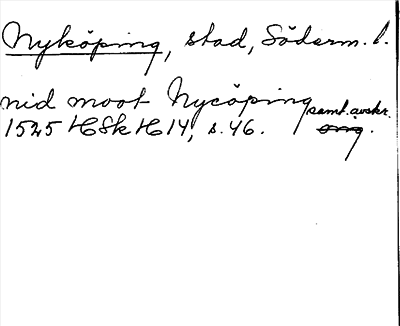 Nyköping, stad, Söderm. l.
nid moot Nycöping samt. avskr.
1525 HSk H 14, s. 46. orig.